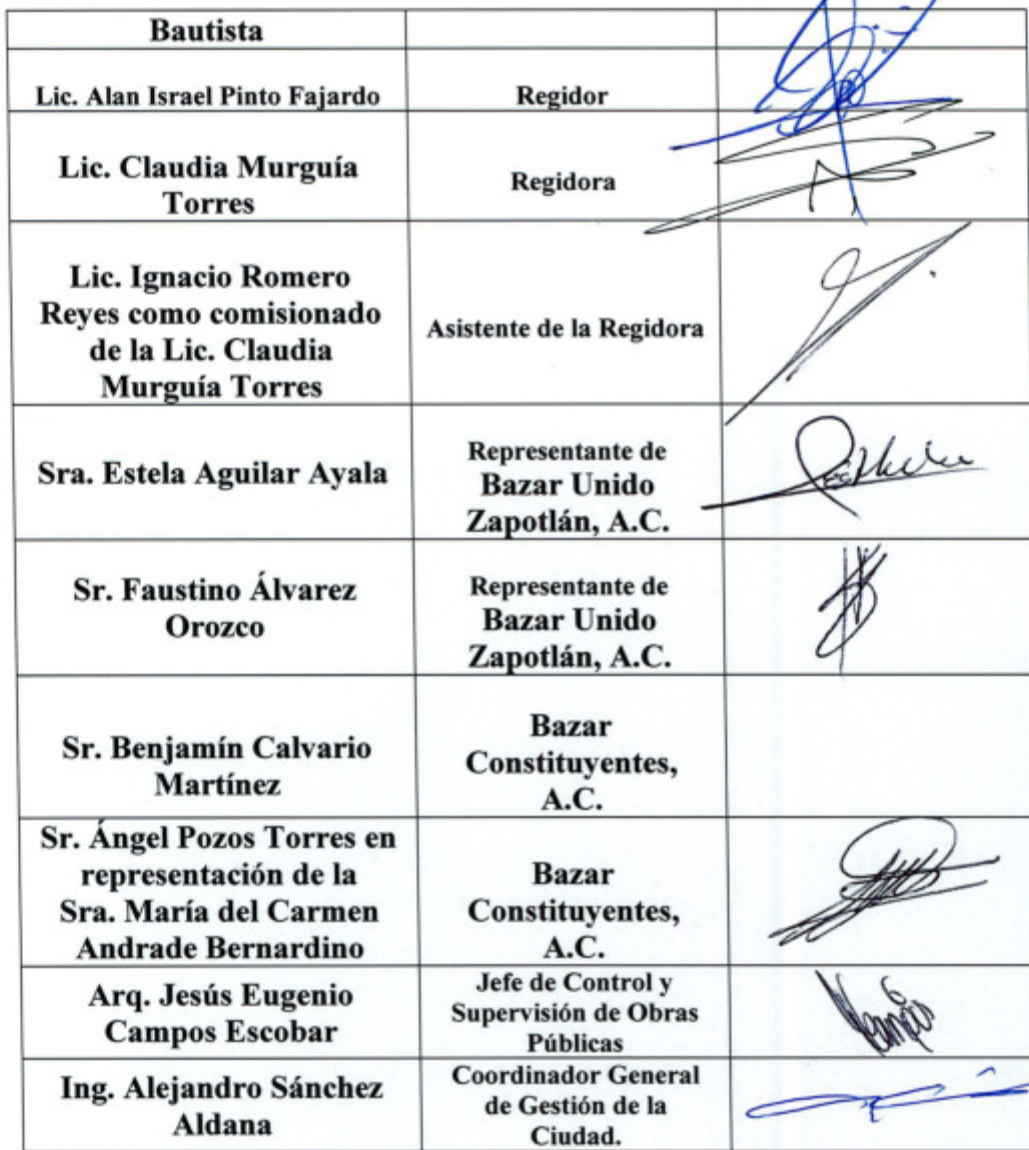 Bautista
Lic. Alan Israel Pinto Fajardo
Regidor
Lic. Claudia Murguía
Torres
Regidora
Lic. Ignacio Romero
Reyes como comisionado
de la Lic. Claudia
Murguía Torres
Asistente de la Regidora
Sra. Estela Aguilar Ayala
Representante de
Bazar Unido
Zapotlán, A.C.
Sr. Faustino Álvarez
Orozco
Representante de
Bazar Unido
Zapotlán, A.C.
Sr. Benjamín Calvario
Martínez
Bazar
Constituyentes,
A.C.
Sr. Ángel Pozos Torres en
representación de la
Sra. María del Carmen
Andrade Bernardino
Bazar
Constituyentes,
A.C.
Arq. Jesús Eugenio
Campos Escobar
Jefe de Control y
Supervisión de Obras
Públicas
Ing. Alejandro Sánchez
Aldana
Coordinador General
de Gestión de la
Ciudad.